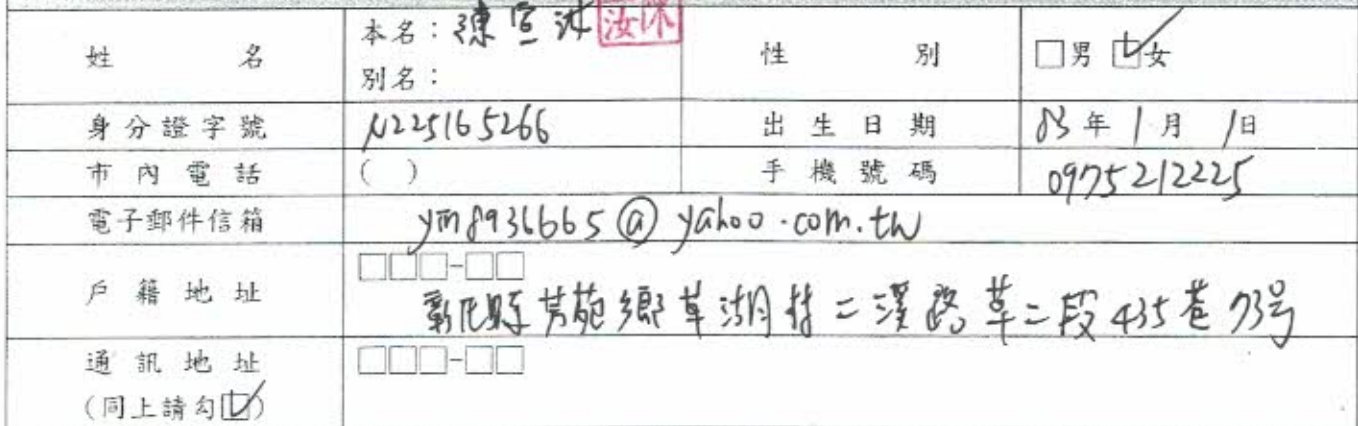 姓 名
本名：陳宣沐 汝沐
別名：
性 別
□男 ☑女
身分證字號
N225165266
出生日期
83年1月1日
市內電話
( )
手機號碼
0975212225
電子郵件信箱
ym8936665@yahoo.com.tw
戶籍地址
□□□-□□
彰化縣芳苑鄉草湖村二溪路草二段435巷73号
通訊地址
(同上請勾☑)
□□□-□□